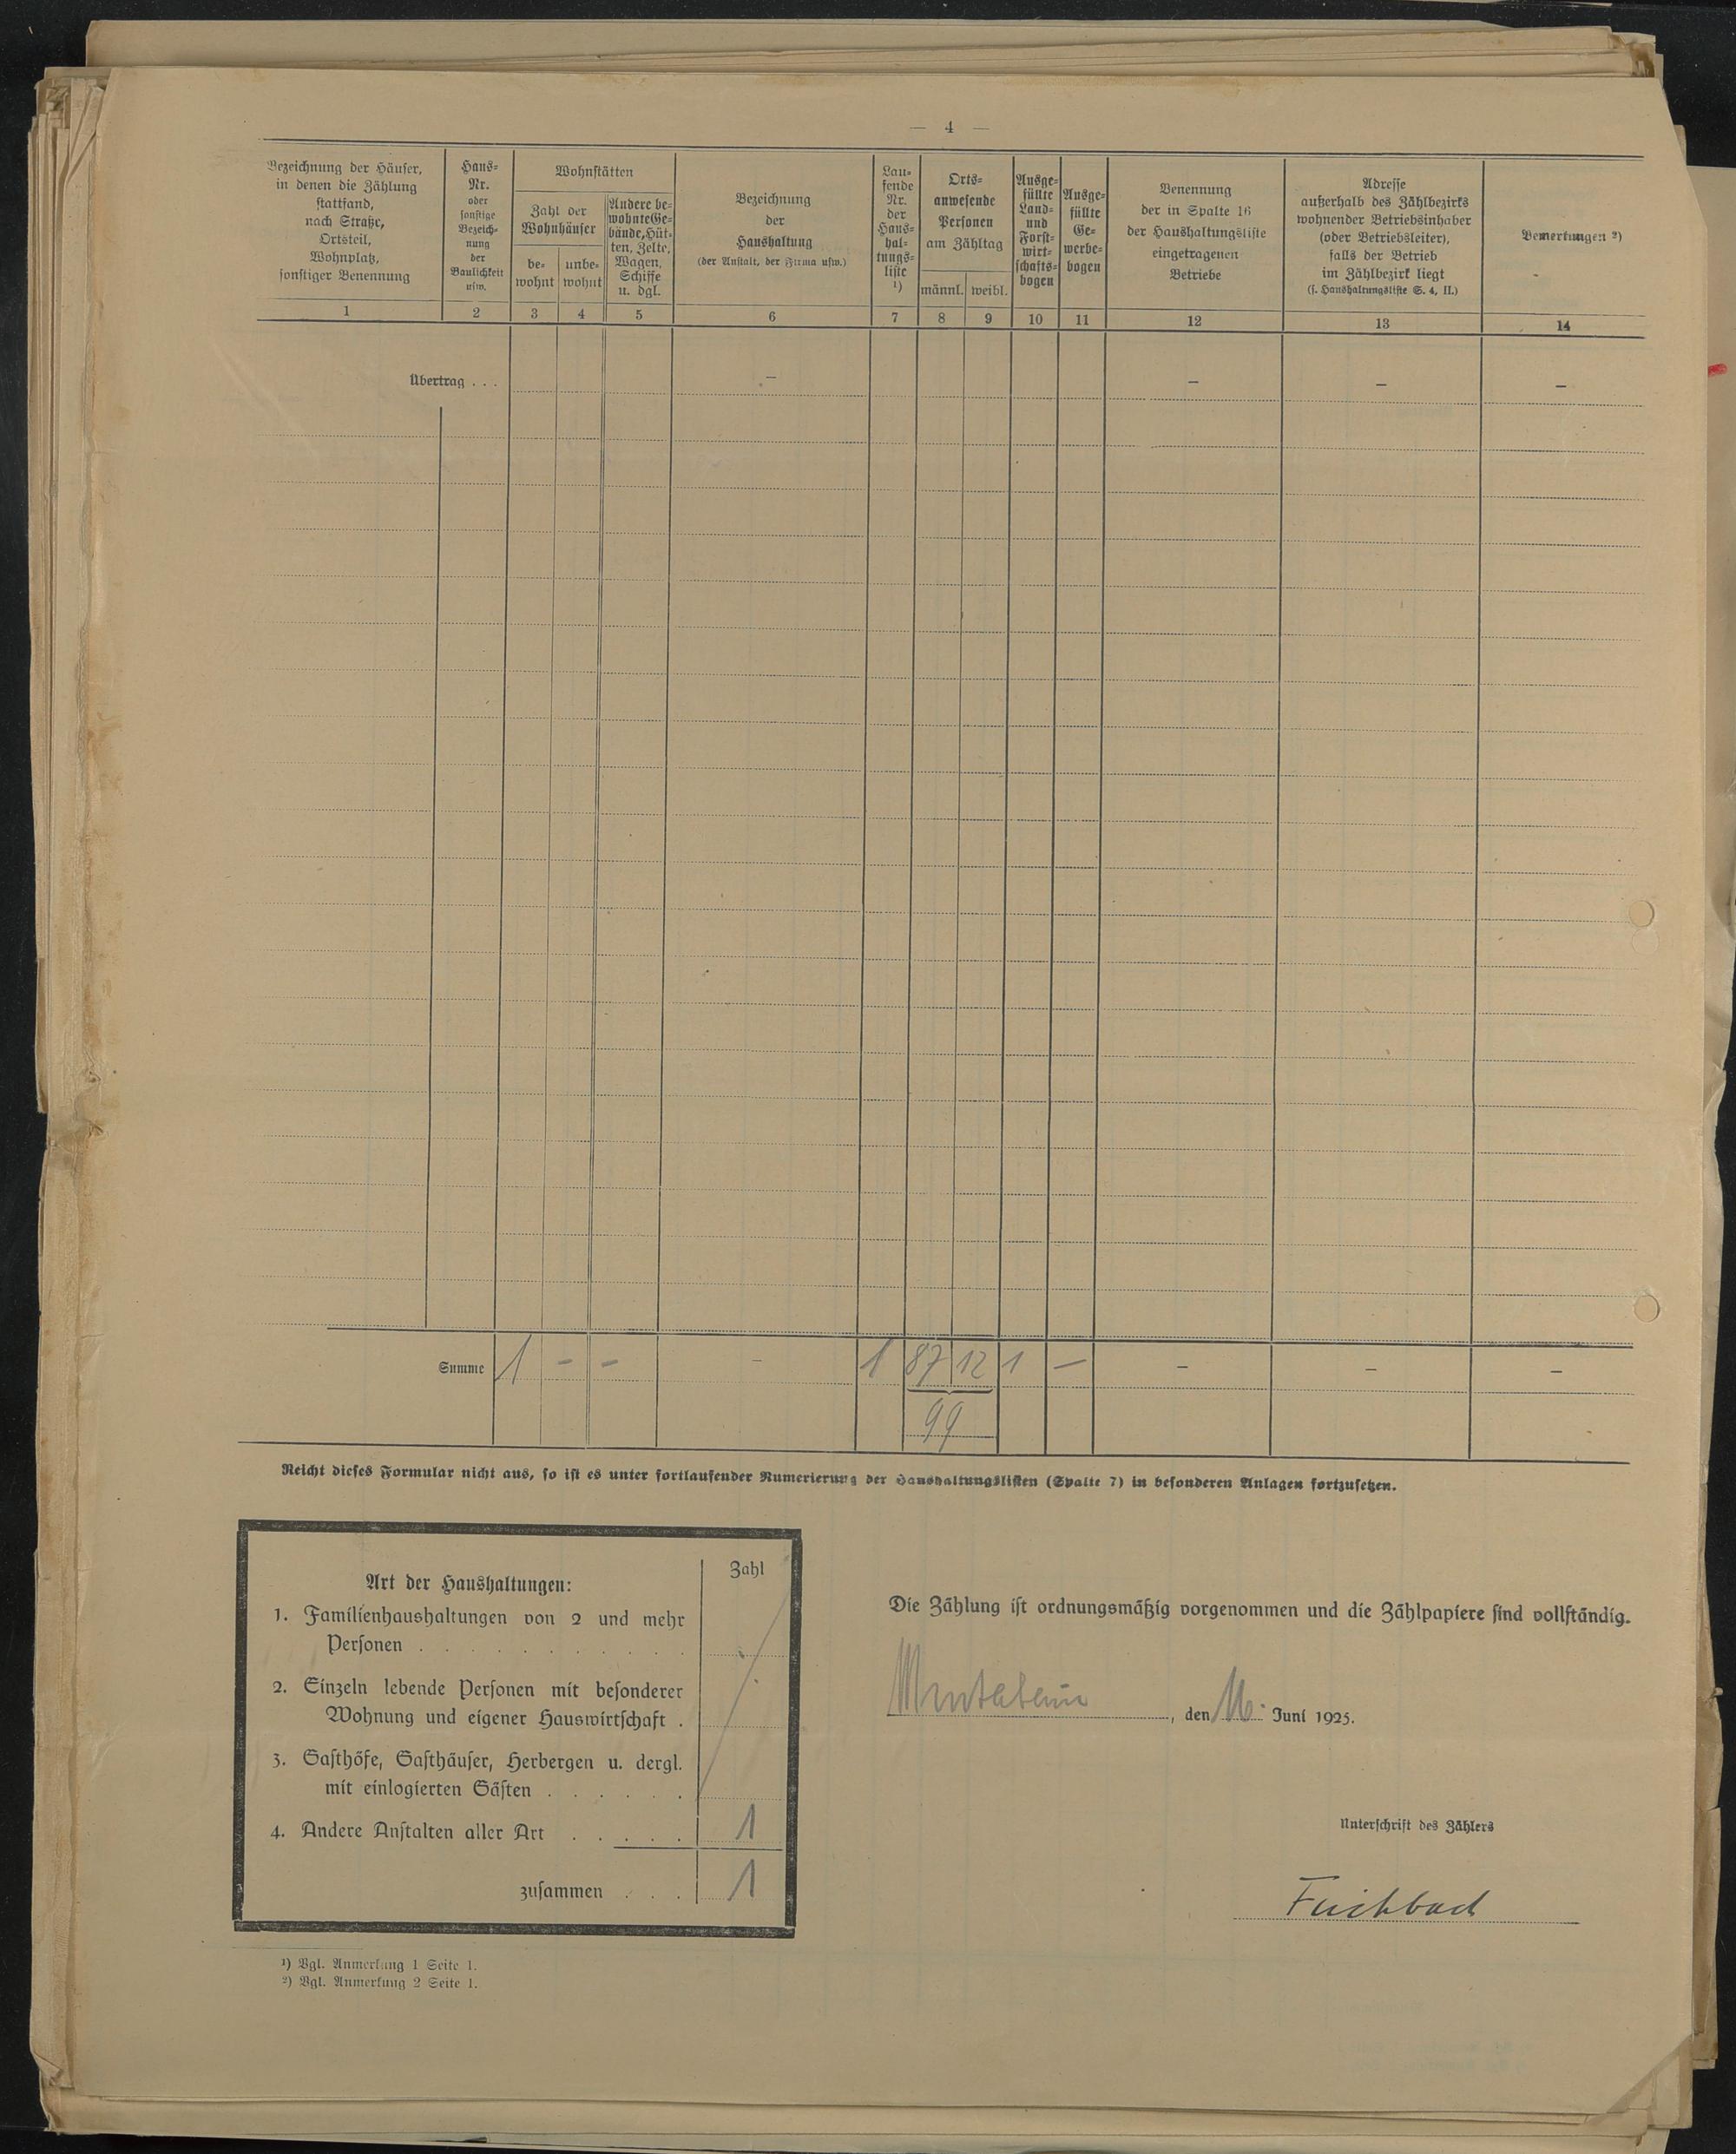 — 4 —
Bezeichnung der Häuser,
in denen die Zählung
stattfand,
nach Straße,
Ortsteil,
Wohnplatz,
sonstiger Benennung
Haus-
Nr.
oder
sonstige
Bezeich-
nung
der
Baulichkeit
usw.
Wohnstätten
Zahl der
Wohnhäuser
be-
wohnt
unbe-
wohnt
Andere be-
wohnte Ge-
bäude, Hüt-
ten, Zelte,
Wagen,
Schiffe
u. dgl.
Bezeichnung
der
Haushaltung
(der Anstalt, der Firma usw.)
Lau-
fende
Nr.
der
Haus-
hal-
tungs-
liste
1)
Orts-
anwesende
Personen
am Zähltag
männl.
weibl.
Ausge-
füllte
Land-
und
Forst-
wirt-
schafts-
bogen
Ausge-
füllte
Ge-
werbe-
bogen
Benennung
der in Spalte 16
der Haushaltungsliste
eingetragenen
Betriebe
Adresse
außerhalb des Zählbezirks
wohnender Betriebsinhaber
(oder Betriebsleiter),
falls der Betrieb
im Zählbezirk liegt
(s. Haushaltungsliste S. 4, II.)
Bemerkungen 2)
1 2 3 4 5 6 7 8 9 10 11 12 13 14
Übertrag . . . — — — —
Summe 1 – – — 1 87 12 1 — — — —
99
Reicht dieses Formular nicht aus, so ist es unter fortlaufender Numerierung der Haushaltungslisten (Spalte 7) in besonderen Anlagen fortzusetzen.
Art der Haushaltungen:
Zahl
1. Familienhaushaltungen von 2 und mehr
Personen . . . . . . . . . .
2. Einzeln lebende Personen mit besonderer
Wohnung und eigener Hauswirtschaft .
3. Gasthöfe, Gasthäuser, Herbergen u. dergl.
mit einlogierten Gästen . . . . . .
4. Andere Anstalten aller Art . . . . . 1
zusammen . . . 1
Die Zählung ist ordnungsmäßig vorgenommen und die Zählpapiere sind vollständig.
, den 16. Juni 1925.
Unterschrift des Zählers
1) Vgl. Anmerkung 1 Seite 1.
2) Vgl. Anmerkung 2 Seite 1.